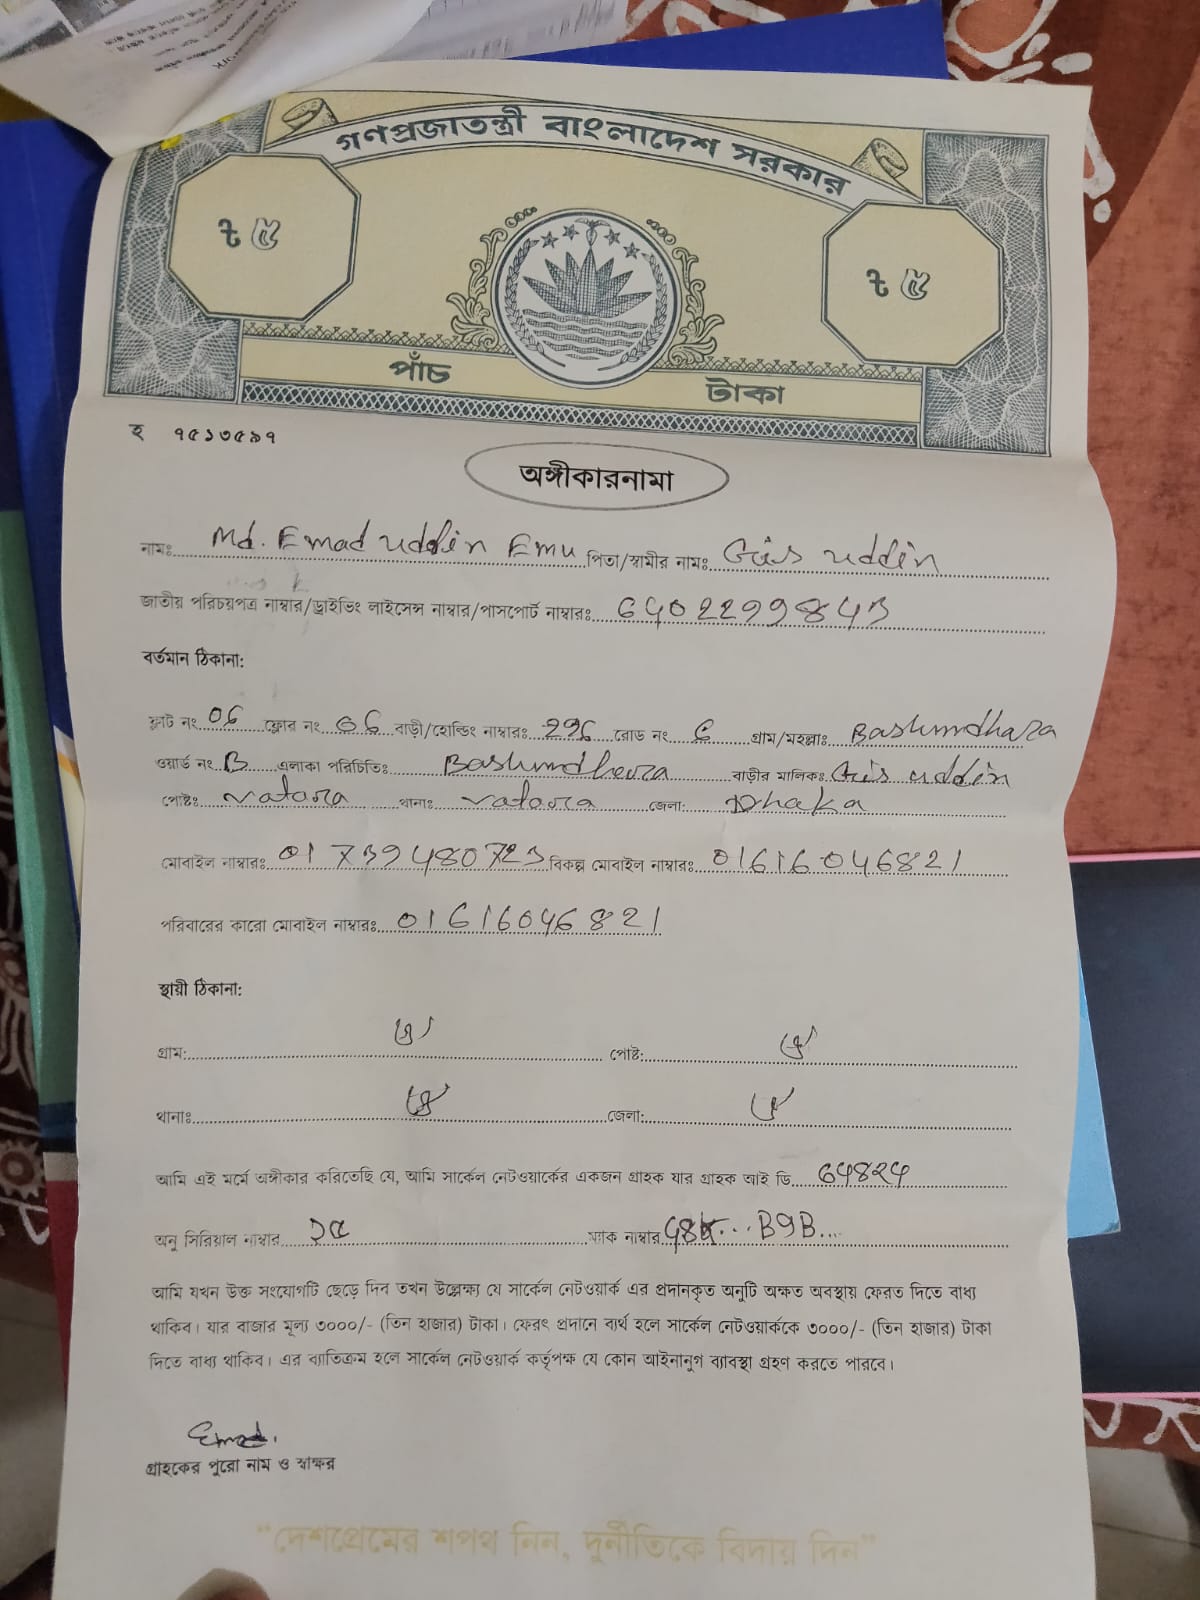 গণপ্রজাতন্ত্রী বাংলাদেশ সরকার
৳ ৫
৳ ৫
পাঁচ টাকা
হ ৭৫১৩৫৯৭
অঙ্গীকারনামা
নামঃ Md. Emad uddin Emu পিতা/স্বামীর নামঃ Gias uddin
জাতীয় পরিচয়পত্র নাম্বার/ড্রাইভিং লাইসেন্স নাম্বার/পাসপোর্ট নাম্বারঃ
বর্তমান ঠিকানা:
ফ্লাট নং 06 ফ্লোর নং 06 বাড়ী/হোল্ডিং নাম্বারঃ রোড নং 6 গ্রাম/মহল্লাঃ Bashundhara
ওয়ার্ড নং B এলাকা পরিচিতিঃ Bashundhara বাড়ীর মালিকঃ Gias uddin
পোষ্টঃ Vatara থানাঃ Vatara জেলা: Dhaka
মোবাইল নাম্বারঃ 01739480723 বিকল্প মোবাইল নাম্বারঃ 01616046821
পরিবারের কারো মোবাইল নাম্বারঃ 01616046821
স্থায়ী ঠিকানা:
গ্রাম: পোষ্ট:
থানাঃ জেলা:
আমি এই মর্মে অঙ্গীকার করিতেছি যে, আমি সার্কেল নেটওয়ার্কের একজন গ্রাহক যার গ্রাহক আই ডি 64824
অনু সিরিয়াল নাম্বার ১৫ ম্যাক নাম্বার B9B
আমি যখন উক্ত সংযোগটি ছেড়ে দিব তখন উল্লেক্ষ্য যে সার্কেল নেটওয়ার্ক এর প্রদানকৃত অনুটি অক্ষত অবস্থায় ফেরত দিতে বাধ্য
থাকিব। যার বাজার মূল্য ৩০০০/- (তিন হাজার) টাকা। ফেরৎ প্রদানে ব্যর্থ হলে সার্কেল নেটওয়ার্ককে ৩০০০/- (তিন হাজার) টাকা
দিতে বাধ্য থাকিব। এর ব্যাতিক্রম হলে সার্কেল নেটওয়ার্ক কর্তৃপক্ষ যে কোন আইনানুগ ব্যাবস্থা গ্রহণ করতে পারবে।
Emad.
গ্রাহকের পুরো নাম ও স্বাক্ষর
"দেশপ্রেমের শপথ নিন, দুর্নীতিকে বিদায় দিন"